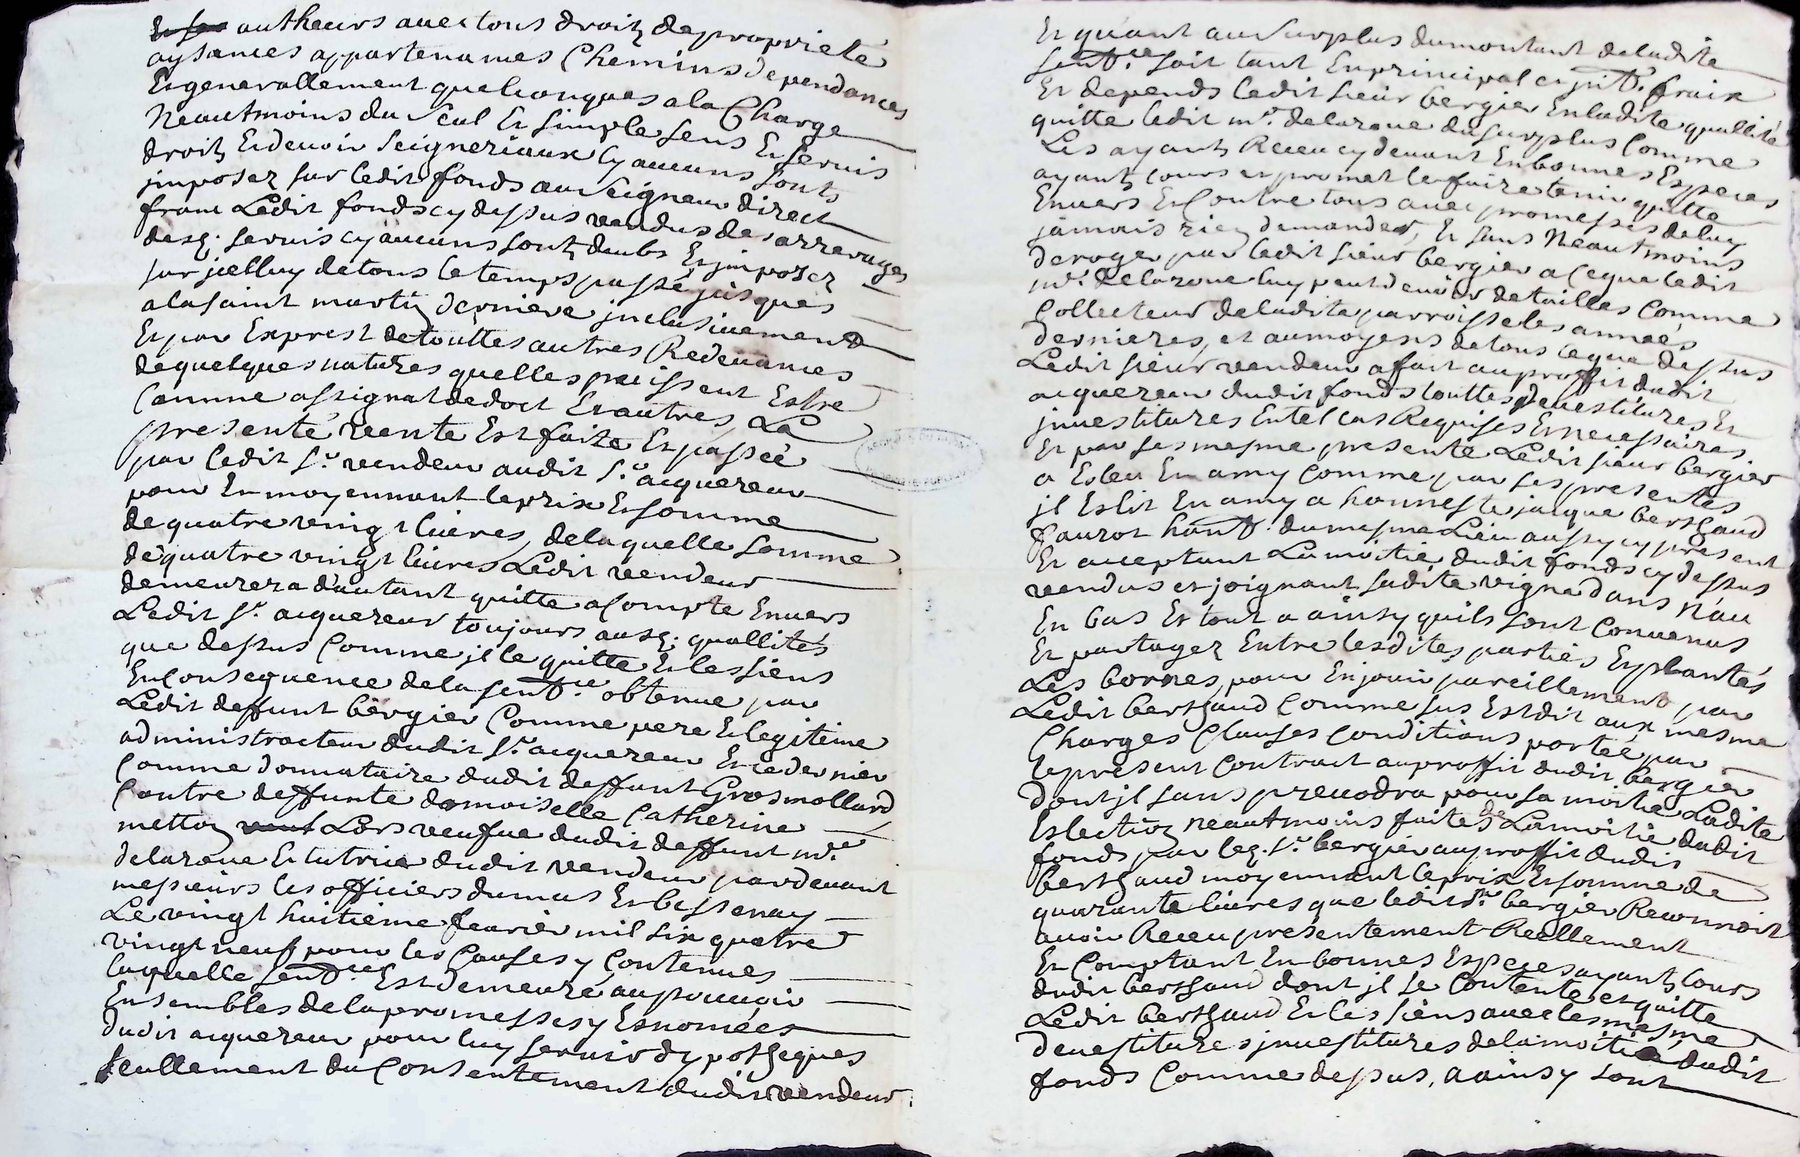 Et ses autheurs avec tous droitz de proprieté
aysances appartenances Chemins dependances
Et generallement quelconques a la Charge
Neautmoins du seul Et simple sens Et servis
droitz Et devoir seigneriaux cy aucuns sont
jmposez sur ledit fonds au seigneur direct
franc Ledit fonds cy dessus vendus des arrerages
desq. servis cy aucuns sont deubs Et jmposez
sur jcelluy de tous le temps passé jusques
a la saint martin derniere jnclusivement
Et par Exprest de touttes autres Redevances
de quelques natures quelles puissent Estre
Comme assignat de doct Et autres La
presente vente Est faite Et passée
par ledit Sr. vendeur audit Sr. acquereur
pour Et moyennant le prix Et somme
de quatre vingt livres, de laquelle somme
de quatre vingt livres Ledit vendeur
demeurera d'autant quitte a Compte Envers
Ledit Sr. acquereur toujours ausq. quallités
que dessus Comme jl le quitte Et les siens
En Consequence de la sentce. obtenue par
Ledit deffunt bergier Comme pere Et legitime
administracteur dudit Sr. acquereur Et ce dernier
Comme donnataire dudit deffunt Grosmollard
Contre deffunte damoiselle Catherine
metton Lors veufve dudit deffunt mre.
delaroue Et tutrice dudit vendeur pardevant
messieurs les officiers dumas Et bessenay
Le vingt huitieme fevrier mil six quatre
vingt neuf pour les Causes y Contenues
laquelle sentce Est demeurée au pouvoir
Ensembles de la promesses y Esnomées
dudit acquereur pour luy servir dypotheques
seullement du Consentement dudit vendeur
Et quant au surplus du montant de ladite
sentce. soit tant En principal frais
Et depends ledit sieur bergier En ladite quallité
quitte ledit mr. delaroue du surplus Comme
Les ayantz Receu cy devant En bonnes Especes
ayantz cours et promet le faire tenir quitte
Envers Et Contre tous avec promesses de luy
jamais rien demander, Et sans Neautmoins
deroger par ledit sieur bergier a ce que ledit
mr. Delaroue luy peut devoir de tailles Comme
Collecteur de ladite parroisse les années
dernieres, et au moyens de tous ce que dessus
Ledit sieur vendeur a fait au proffit dudit
acquereur dudit fonds touttes devestitures Et
jnvestitures En tel cas Requises Et necessaires
Et par ses mesme presente Ledit sieur bergier
a Esleu En amy Comme par ses presentes
jl Eslit En amy a honneste jacque berthaud
habt. du mesme Lieu aussy cy present
Et acceptant La moitié dudit fonds cy dessus
vendus et joignant sadite vigne dans
En bas Et tout a ainsy quils sont Convenus
Et partagez Entre lesdites parties Et plantés
Les bornes, pour En jouir pareillement par
Ledit berthaud Comme sus Est dit aux mesme
Charges Clauses Conditions portée par
le present Contract au proffit dudit bergier
dont jl sans prevodra pour sa moitié Ladite
Eslection neautmoins faites de La moitié dudit
fonds par leq. Sr. bergier au proffit dudit
berthaud moyennant le prix Et somme de
quarante livres que ledit Sr. bergier Reconnoit
avoir Receu presentement Reellement
Et Comptant En bonnes Especes ayantz Cours
dudit berthaud dont jl se Contente et quitte
Ledit berthaud Et les siens avec les mesme
devestitures jnvestitures de la moitié dudit
fonds Comme dessus, a ainsy sont